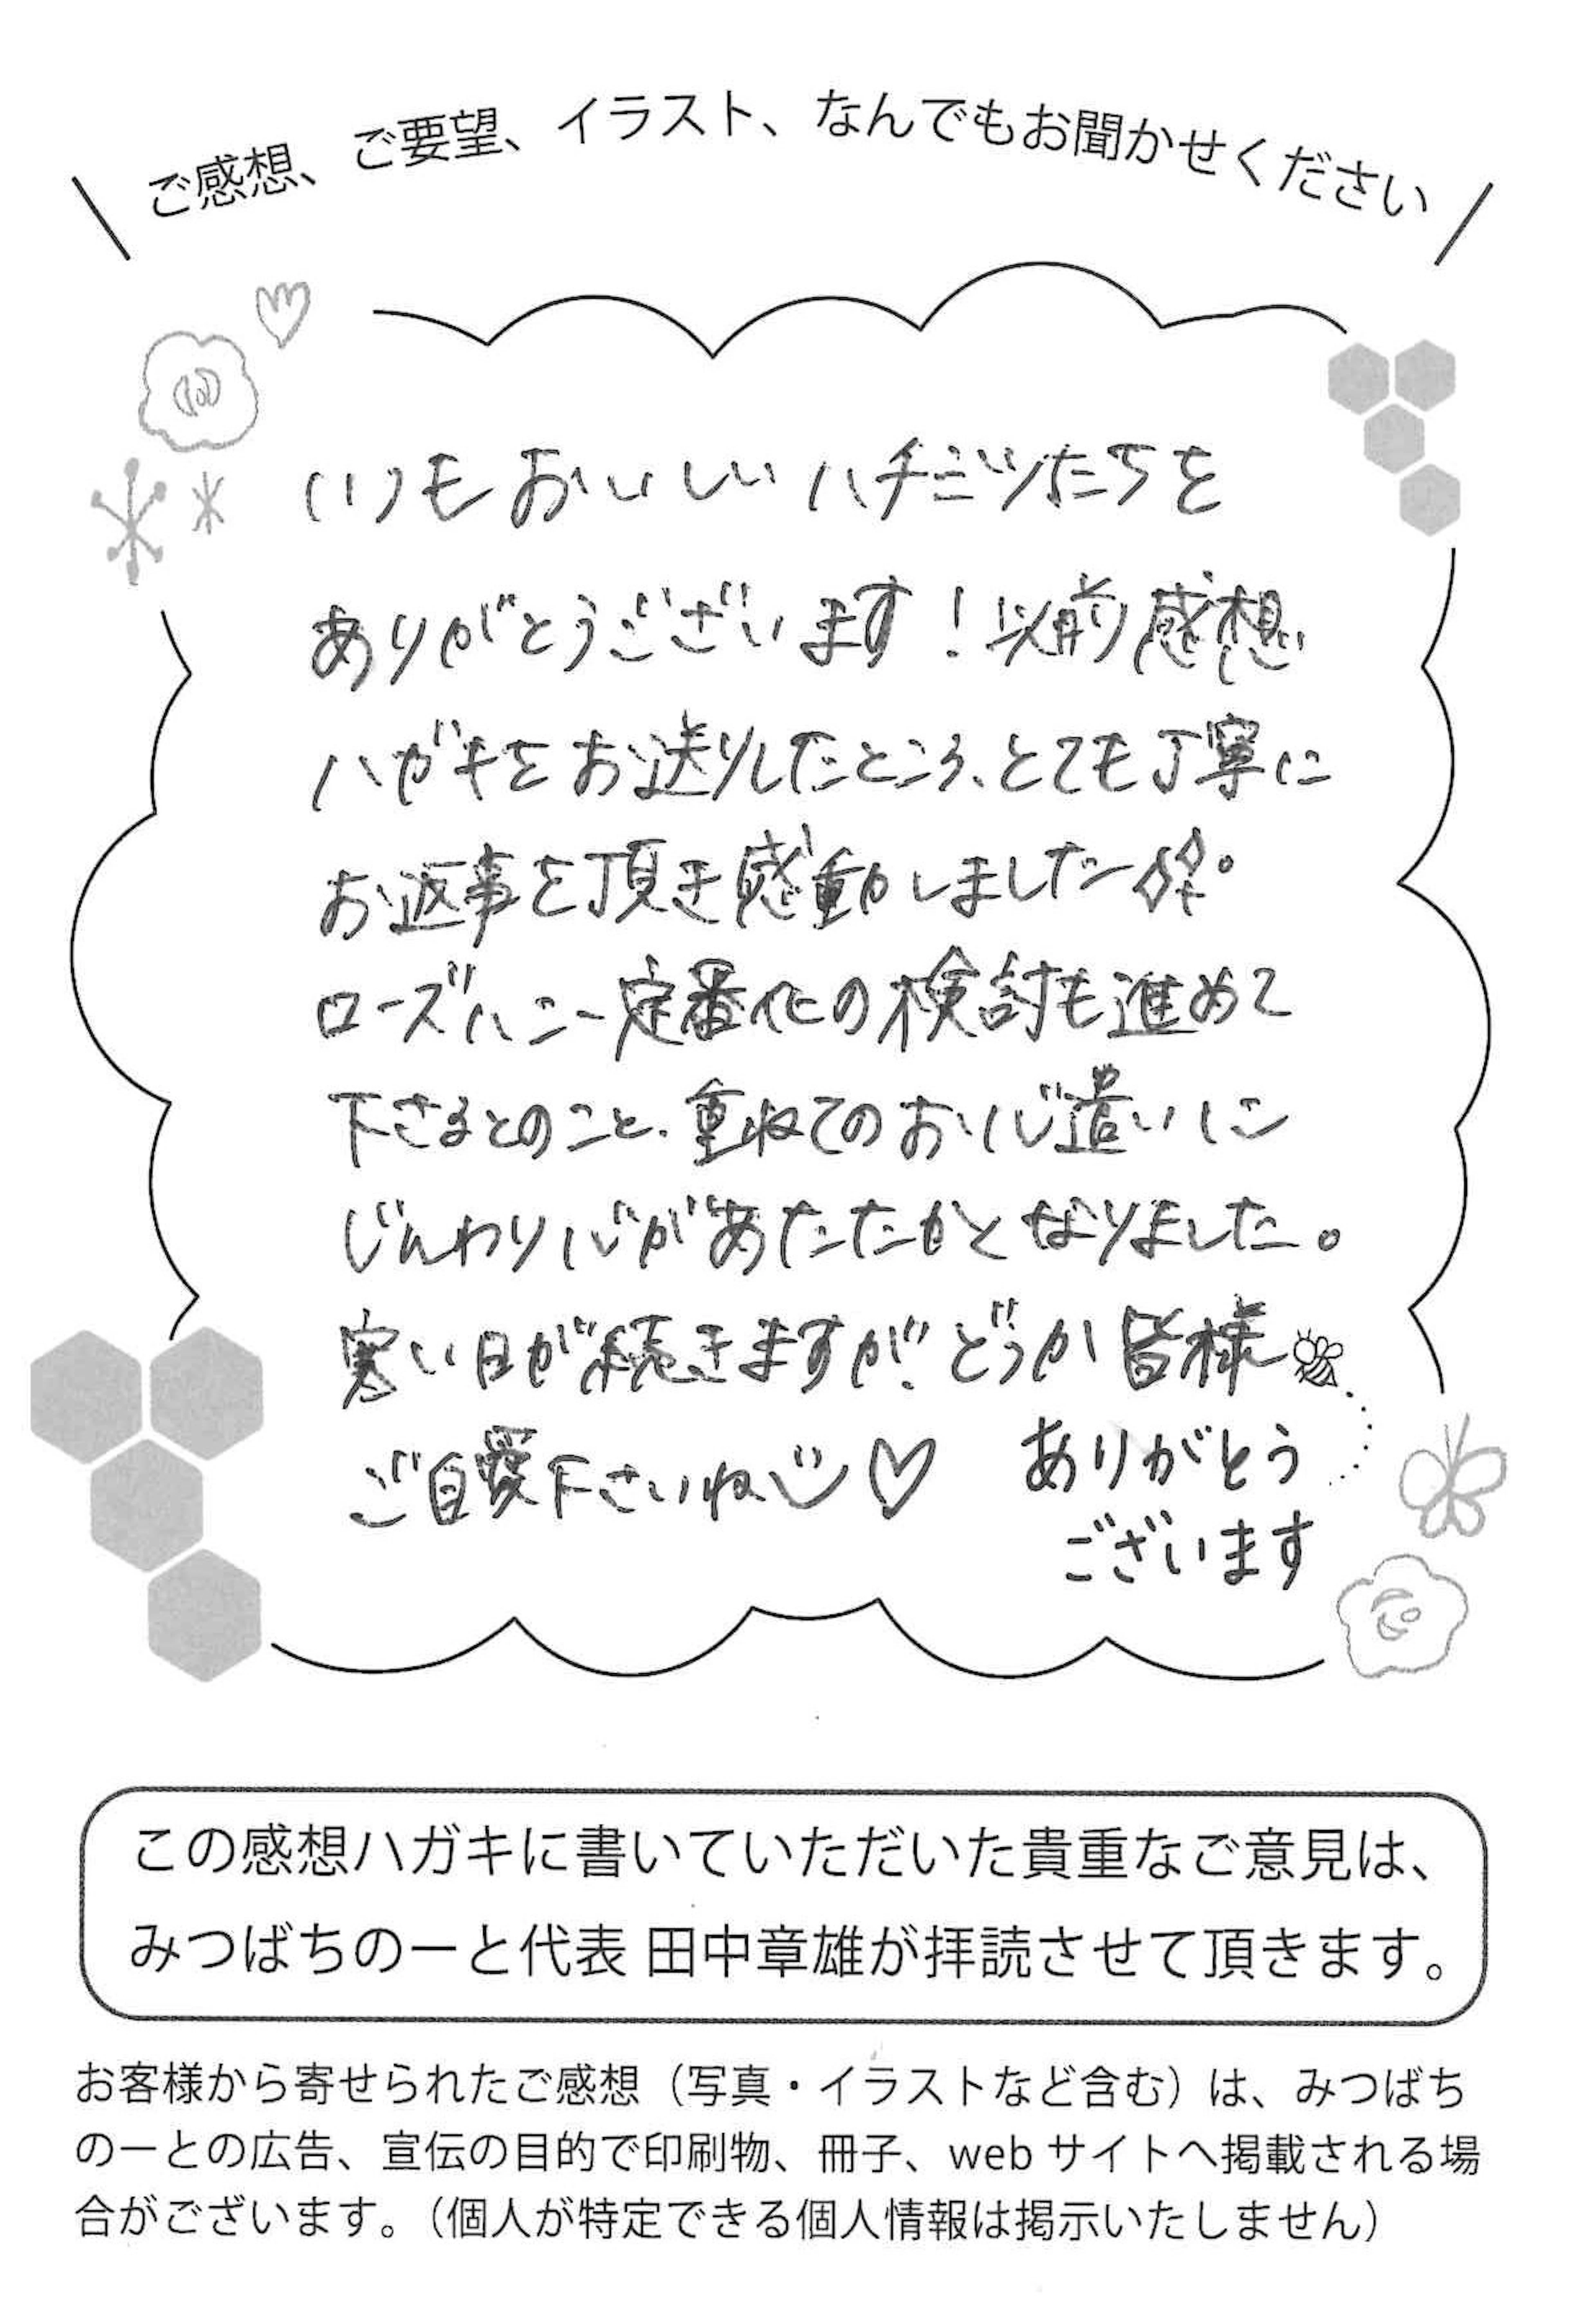 ご感想、ご要望、イラスト、なんでもお聞かせください
いつもおいしいハチミツたちを
ありがとうございます！以前感想
ハガキをお送りしたところ、とても丁寧に
お返事を頂き感動しました
ローズハニー定番化の検討も進めて
下さるとのこと、重ねてのお心遣いに
じんわり心があたたかくなりました。
寒い日が続きますが、どうか皆様
ご自愛下さいね
ありがとう
ございます
この感想ハガキに書いていただいた貴重なご意見は、
みつばちのーと代表 田中章雄が拝読させて頂きます。
お客様から寄せられたご感想（写真・イラストなど含む）は、みつばち
のーとの広告、宣伝の目的で印刷物、冊子、web サイトへ掲載される場
合がございます。（個人が特定できる個人情報は掲示いたしません）